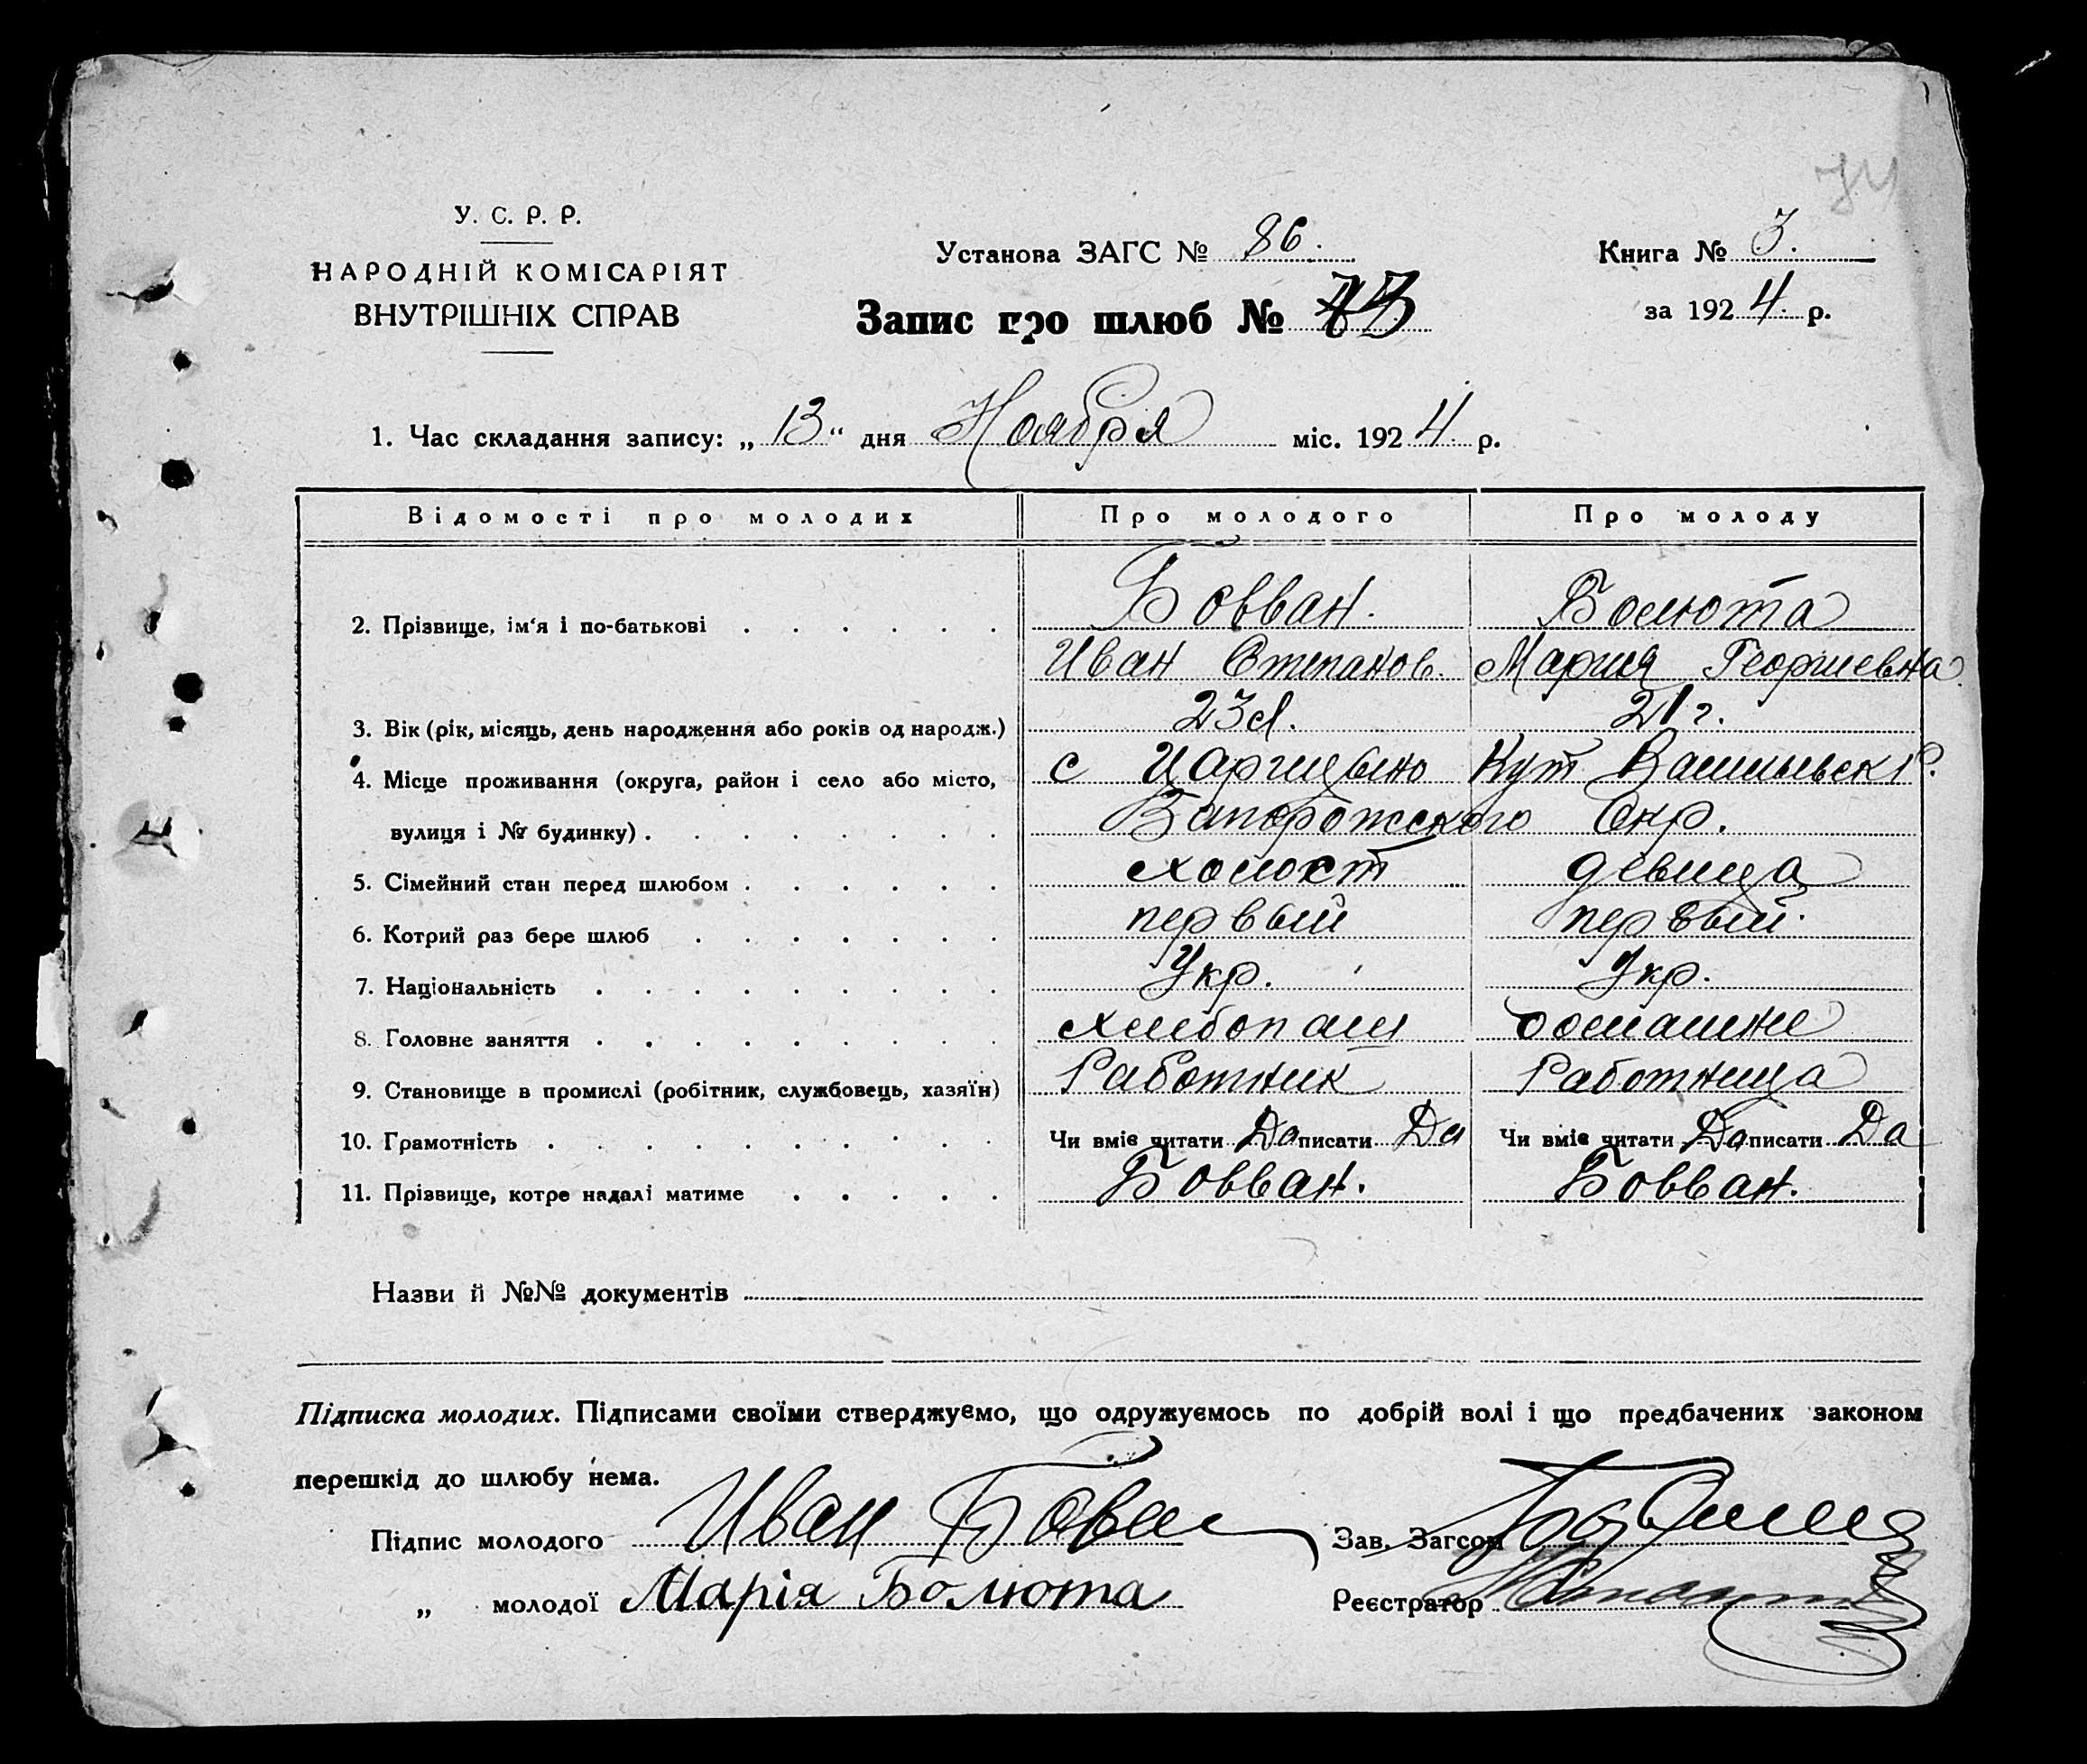 74
У. С. Р. Р.
НАРОДНІЙ КОМІСАРІЯТ
ВНУТРІШНІХ СПРАВ
Установа ЗАГС № 86.
Книга № 3.
Запис про шлюб №
за 1924. р.
1. Час складання запису: „13“ дня Ноября міс. 1924. р.
Відомості про молодих Про молодого Про молоду
2. Прізвище, ім'я і по-батькові Бовван. Болюта
Иван Степанов. Мария Георгиевна.
3. Вік (рік, місяць, день народження або років од народж.) 23 л. 21 г.
4. Місце проживання (округа, район і село або місто, с Царицыно Кут
вулиця і № будинку) Запорожского Окр.
5. Сімейний стан перед шлюбом холост девица
6. Котрий раз бере шлюб первый первый.
7. Національність Укр. Укр.
8. Головне заняття домашне
9. Становище в промислі (робітник, службовець, хазяїн) Работник Работница
10. Грамотність Чи вміє читати Да писати Да Чи вміє читати Да писати Да
11. Прізвище, котре надалі матиме Бовван. Бовван.
Назви й №№ документів
Підписка молодих. Підписами своїми стверджуємо, що одружуємось по добрій волі і що предбачених законом
перешкід до шлюбу нема.
Підпис молодого Иван Зав. Загсом
„ молодої Марія Болюта Реєстратор